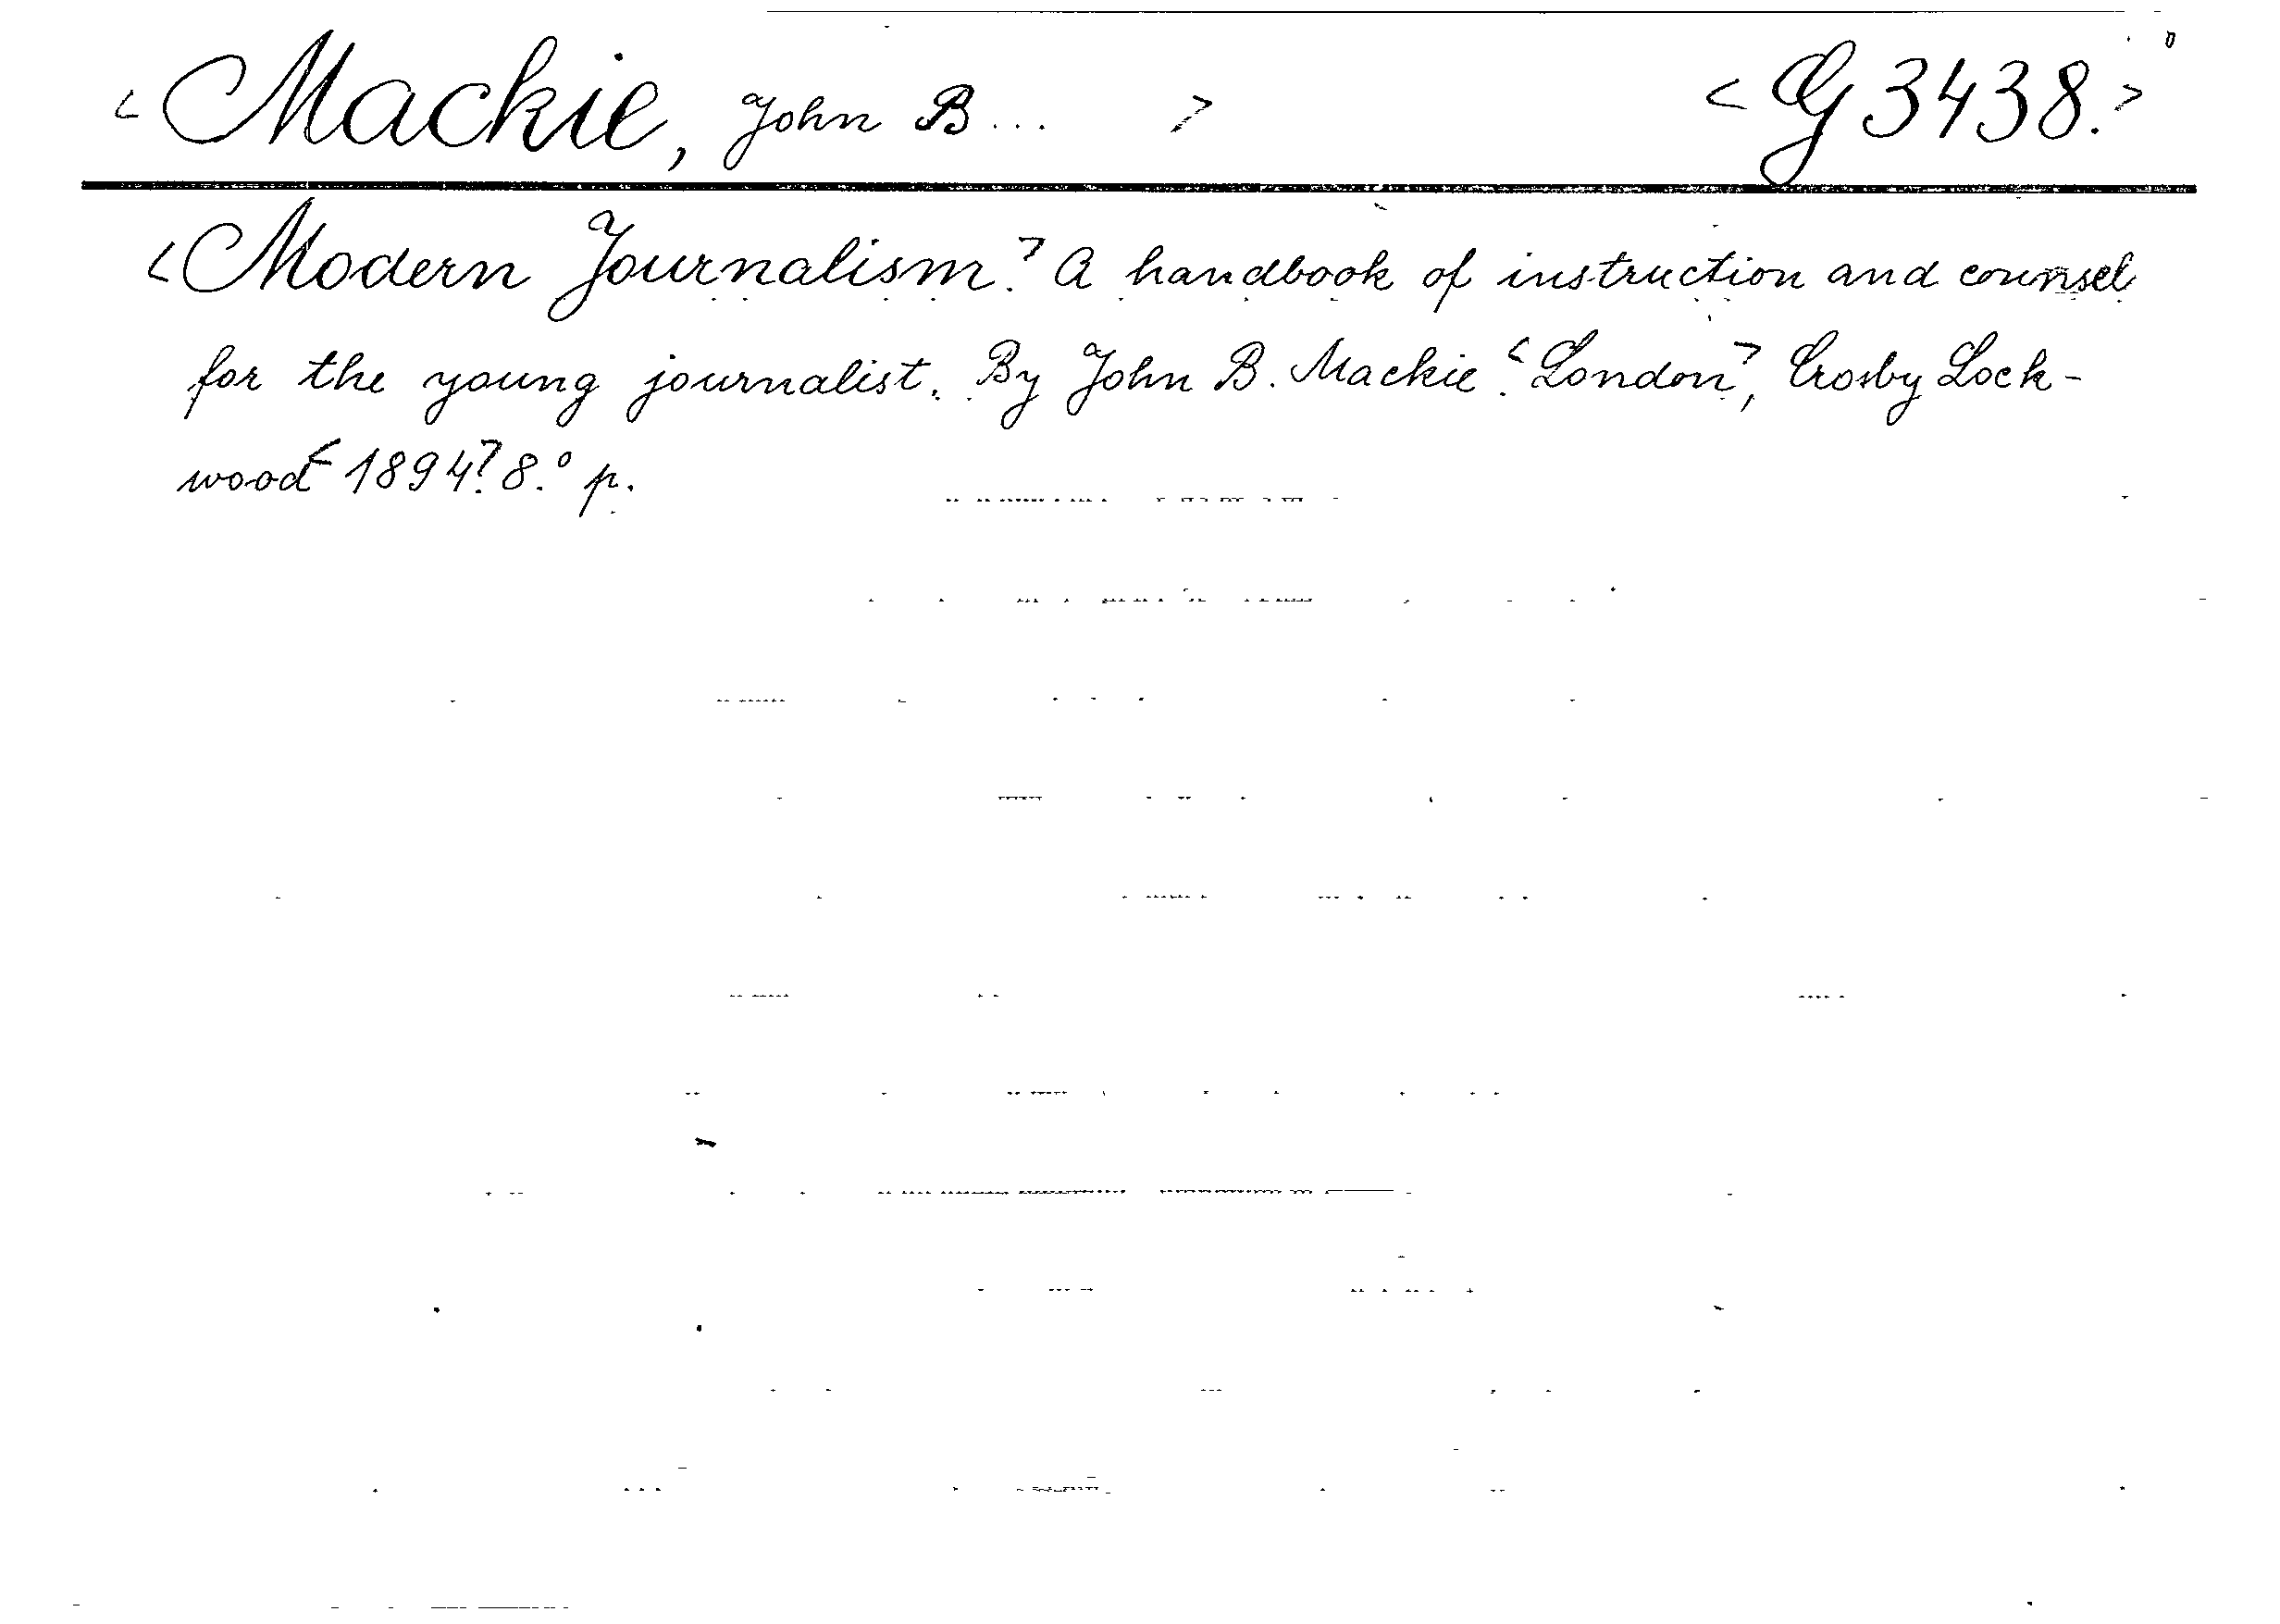 <Mackie, John B... > <G 3438.>
<Modern Journalism.> A handbook of instruction and counsel
for the young journalist. By John B. Mackie. <London>, Crosby Lock-
wood <1894>. 8.° p.